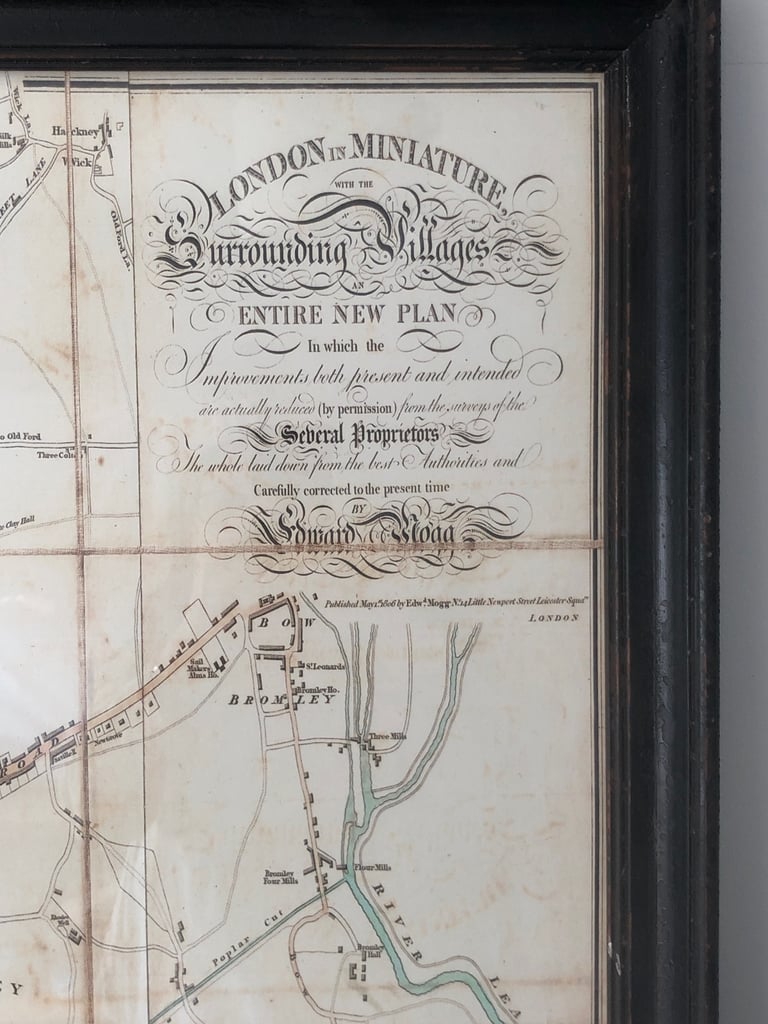 LONDON IN MINIATURE,
WITH THE
Surrounding Villages
AN
ENTIRE NEW PLAN
In which the
Improvements both present and intended
are actually reduced (by permission) from the surveys of the
Several Proprietors
The whole laid down from the best Authorities and
Carefully corrected to the present time
BY
Edward Mogg
Published May 1st 1806 by Edwd. Mogg No. 14 Little Newport Street Leicester Squa
LONDON
Hackney
Wick
Wick La.
LANE
Old Ford La.
o Old Ford
Three Colts
Clay Hall
BOW
Sail
Makers
Alms Ho.
St. Leonards
Bromley Ho.
BROMLEY
Three Mills
ROAD
Flour Mills
Bromley
Four Mills
Poplar Cut
Bromley
Hall
RIVER LEA
EY